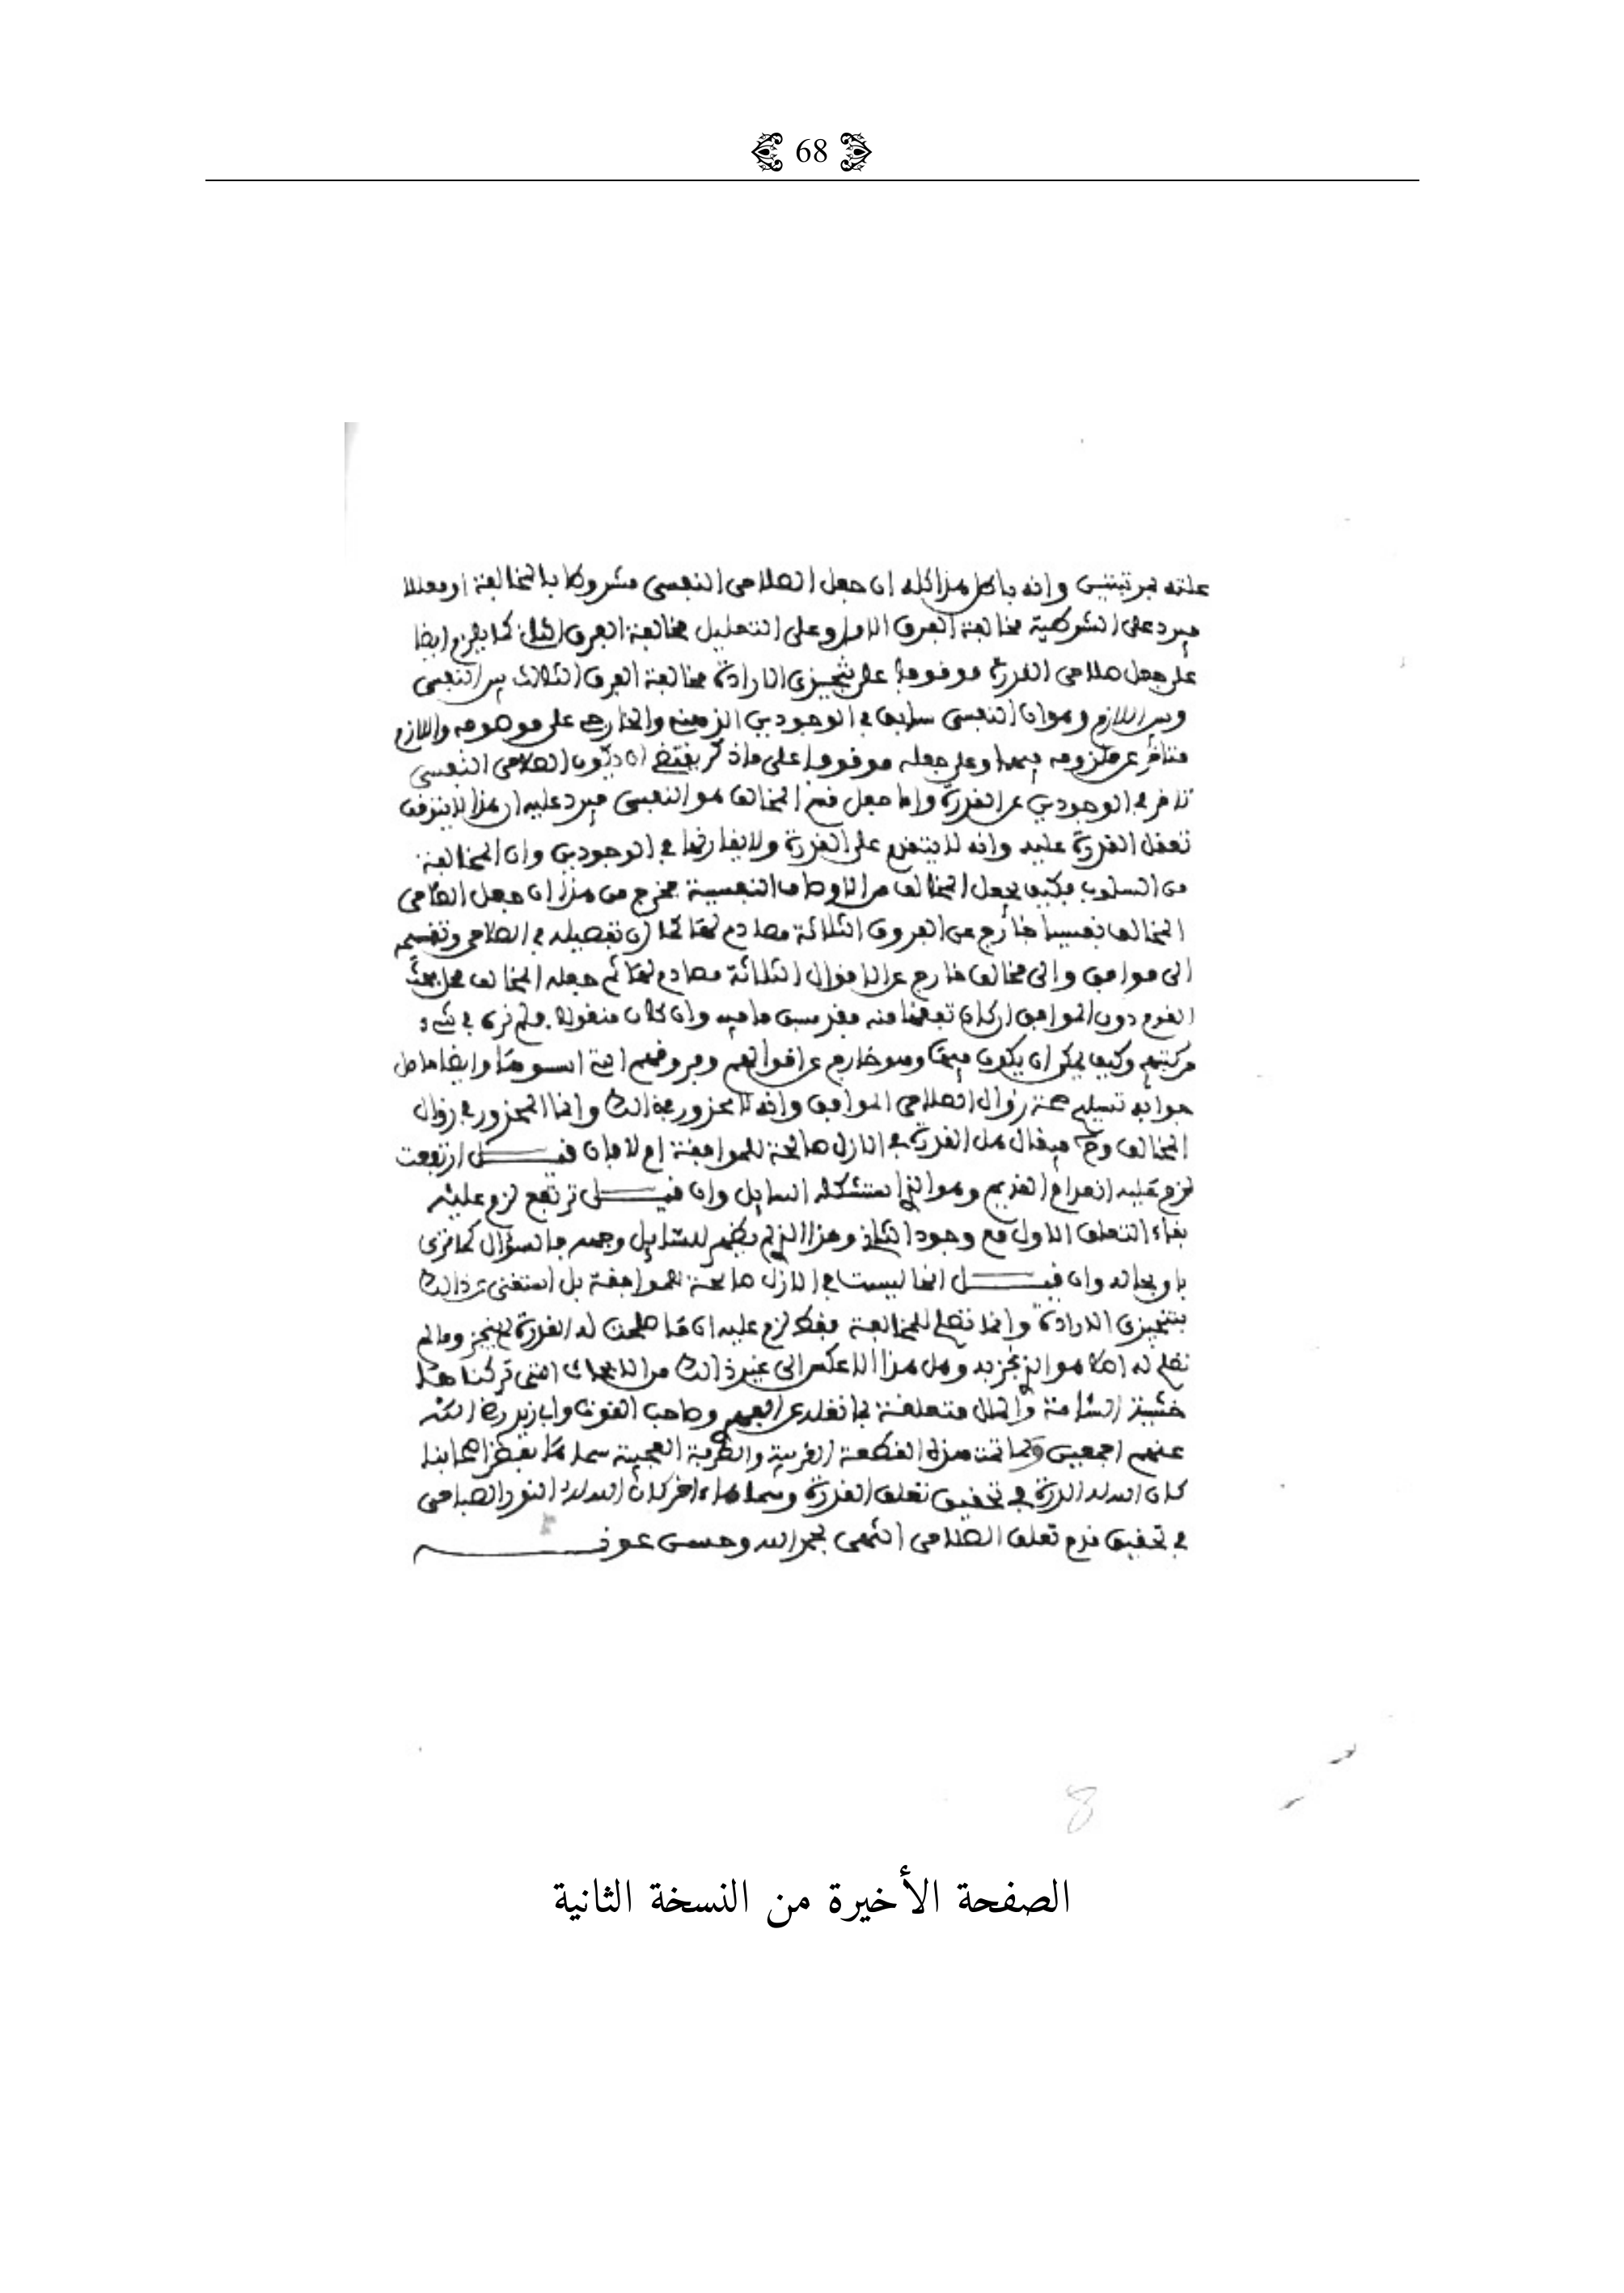 68
علته بمرتبتين وانه باطل هذا كله ان جعل الصلاحي النفسي مشروطا بالمخالفة او معللا
فيرد على الشرطية مخالفة الفرق الاول وعلى التعليل مخالفة الفرق الثاني كما يلزم ايضا
على جعل صلاحي القدرة موقوفا على تنجيزي الارادة مخالفة الفرق الثالث بين النفسي
وبين اللازم وهو ان النفسي سابق في الوجودين الذهني والخارجي على موصوفه واللازم
متأخر عن ملزومه فيهما وعلى جعله موقوفا على ما ذكر يقتضي ان يكون الصلاحي النفسي
تأخر في الوجودين عن القدرة واما جعل قسم المخالف هو النفسي فيرد عليه ان هذا لا يتوقف
تعقل القدرة عليه وانه لا يتقدم على القدرة ولا يفارقها في الوجودين وان المخالفة
من السلوب فكيف يجعل المخالف من الاوصاف النفسية فخرج من هذا ان جعل الصلاحي
المخالف نفسيا خارج عن الفروق الثلاثة مصادم لها كما ان تفصيله في الصلاحي وتقسيمه
الى موافق والى مخالف خارج عن الاقوال الثلاثة مصادم لها ثم جعله المخالف محل بحث
القوم دون الموافق ان كان تفقها منه فقد سبق ما فيه وان كان منقولا فلم نره في شيء
من كتبهم وكيف يمكن ان يكون فيها وهو خارج عن اقوالهم وفروقهم وايضا حاصل
جوابه تسليم صحة زوال الصلاحي الموافق وانه لا محذور في ذالك وانما المحذور في زوال
المخالف وح فيقال هل القدرة في الازل صالحة للموافقة ام لا فان قيل ارتفعت
لزم عليه انعدام القديم وهو الذي استشكله السايل وان قيل لم ترتفع لزم عليه
بقاء التعلق الاول مع وجود الثاني وهذا الذي لم يظهر للسايل وجهه فالسؤال كما ترى
باق بحاله وان قيل انها ليست في الازل صالحة للموافقة بل استغنى عن ذالك
بتنجيزي الارادة وانما تصلح للمخالفة فقط لزم عليه ان ما صلحت له القدرة لم ينجز وما لم
تصلح له اصلا هو الذي نجز به وهل هذا الا عكس الى غير ذالك من الابحاث التي تركناها
خشية السآمة والملل متعلقة بما نقله عن الفهري وصاحب القوت وابي زيد رضي الله
عنهم اجمعين ولما تمت هذه القطعة الغريبة والطرفة العجيبة سماها بعض اصحابنا
كان الله له الدرة في تحقيق تعلق القدرة وسماها ءاخر كان الله له النور الصباحي
في تحقيق قدم تعلق الصلاحي انتهى بحمد الله وحسن عونه
8
الصفحة الأخيرة من النسخة الثانية